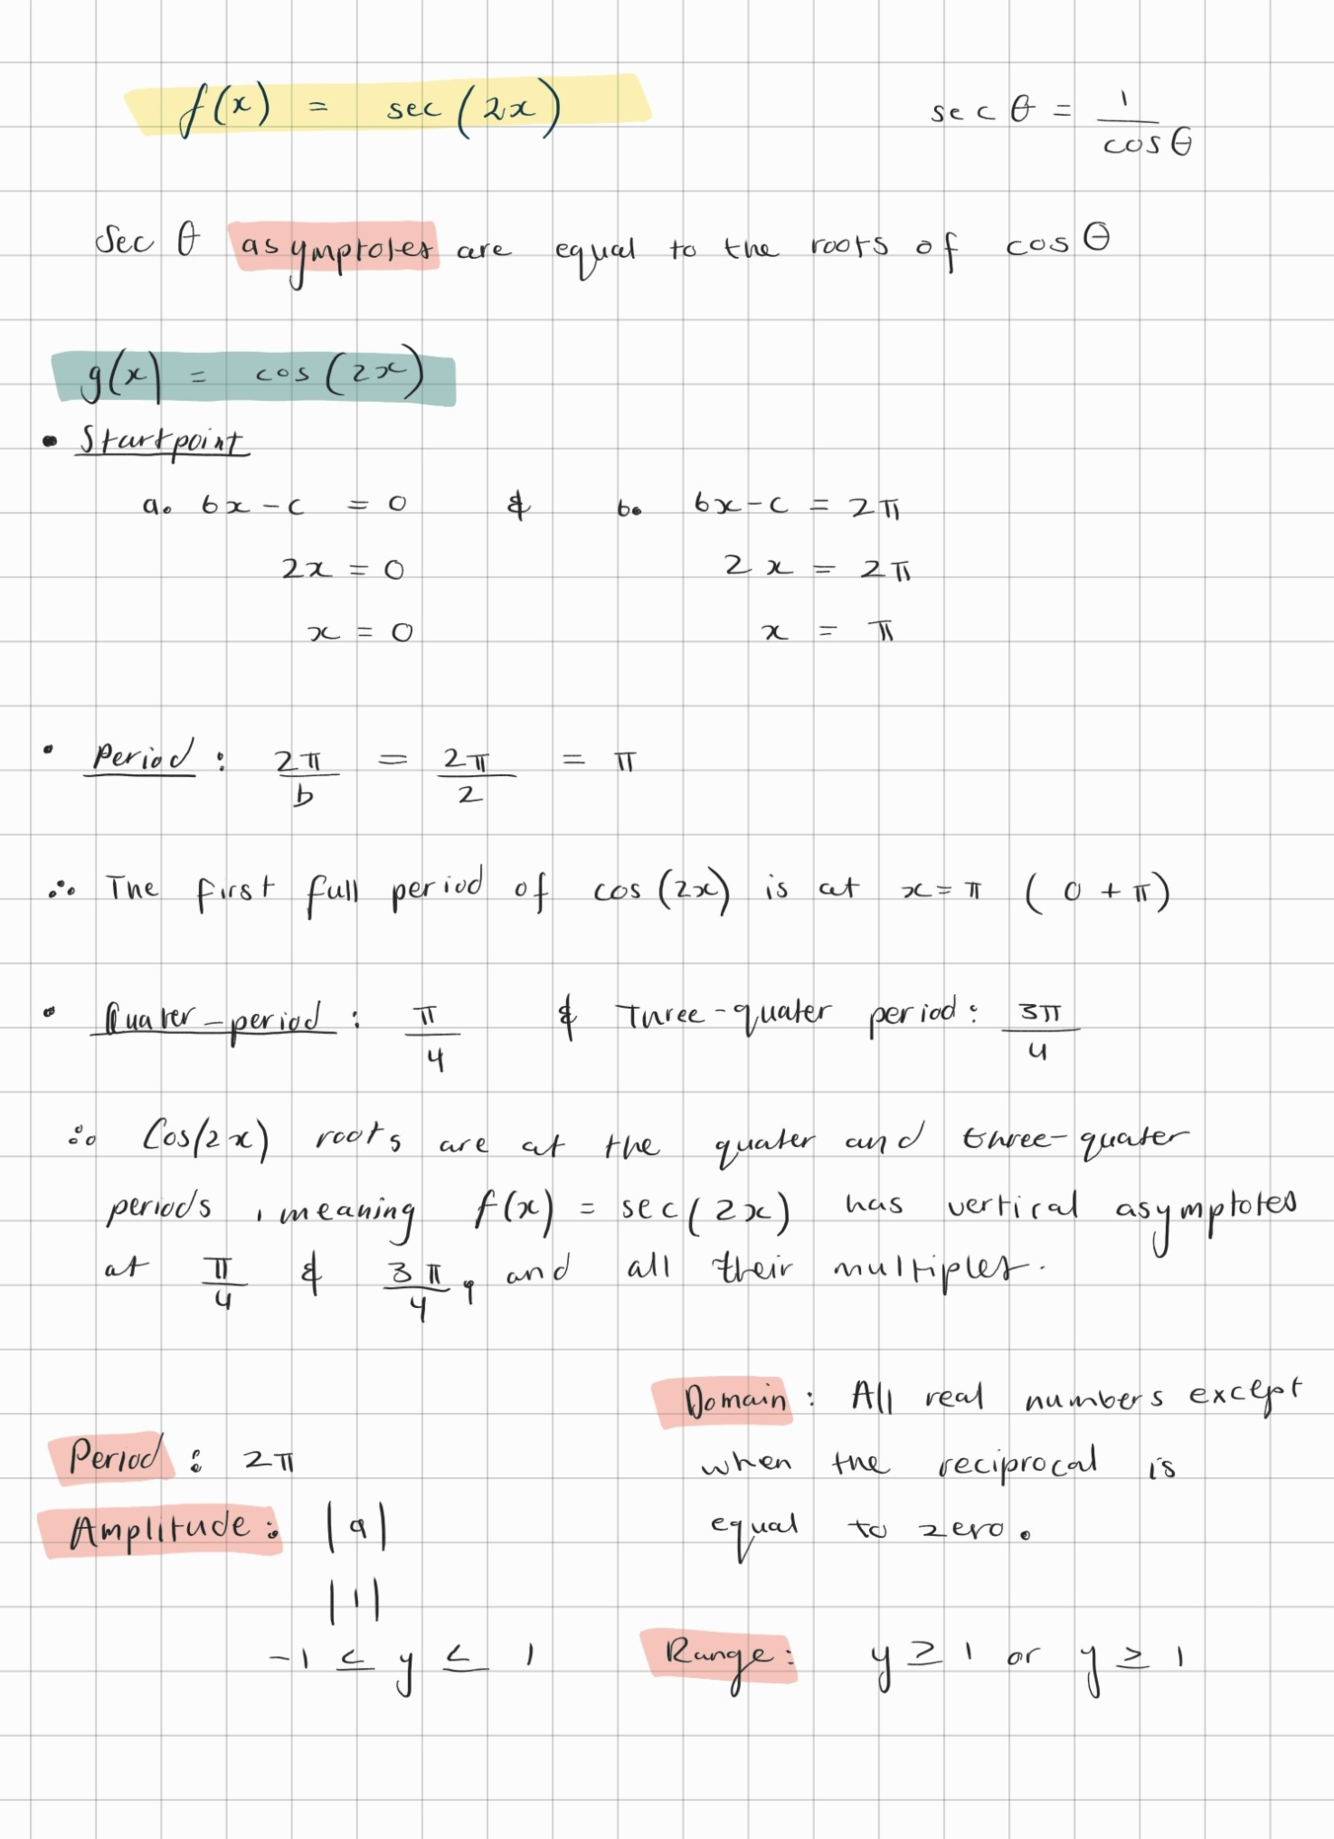 f(x) = sec(2x)
sec θ = 1/cosθ
Sec θ asymptotes are equal to the roots of cosθ
g(x) = cos(2x)
• Startpoint
a. bx - c = 0 & b. bx - c = 2π
2x = 0 2x = 2π
x = 0 x = π
• Period : 2π/b = 2π/2 = π
∴ The first full period of cos(2x) is at x = π (0 + π)
• Quater-period : π/4 & Three-quater period : 3π/4
∴ Cos(2x) roots are at the quater and three-quater
periods, meaning f(x) = sec(2x) has vertical asymptotes
at π/4 & 3π/4, and all their multiples.
Period : 2π
Amplitude : |a|
|1|
-1 ≤ y ≤ 1
Domain : All real numbers except
when the reciprocal is
equal to zero.
Range : y ≥ 1 or y ≥ 1